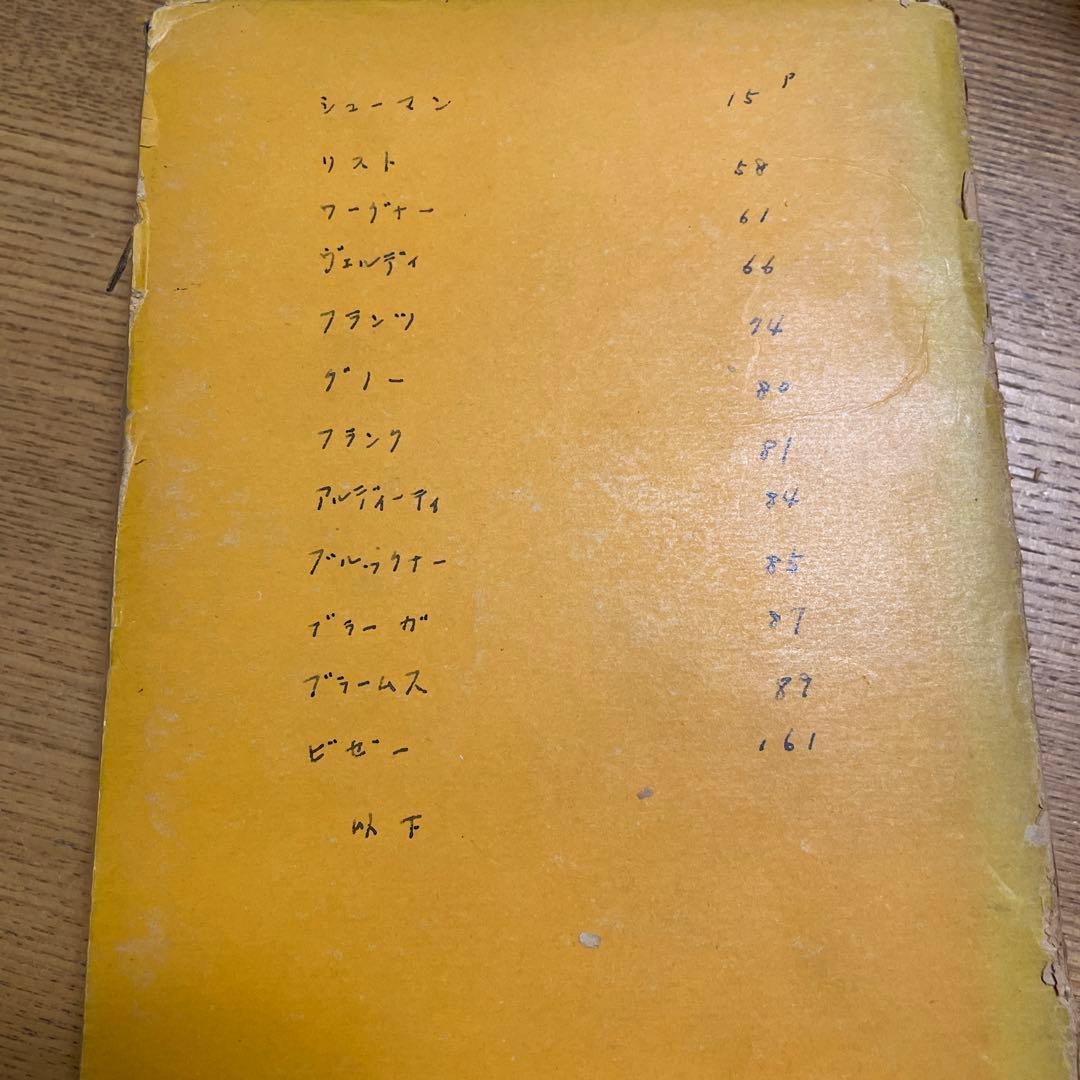 シューマン 15P
リスト 58
ワーグナー 61
ヴェルディ 66
フランツ 74
グノー 80
フランク 81
アルディーティ 84
ブルックナー 85
ブラーガ 87
ブラームス 89
ビゼー 161
以下